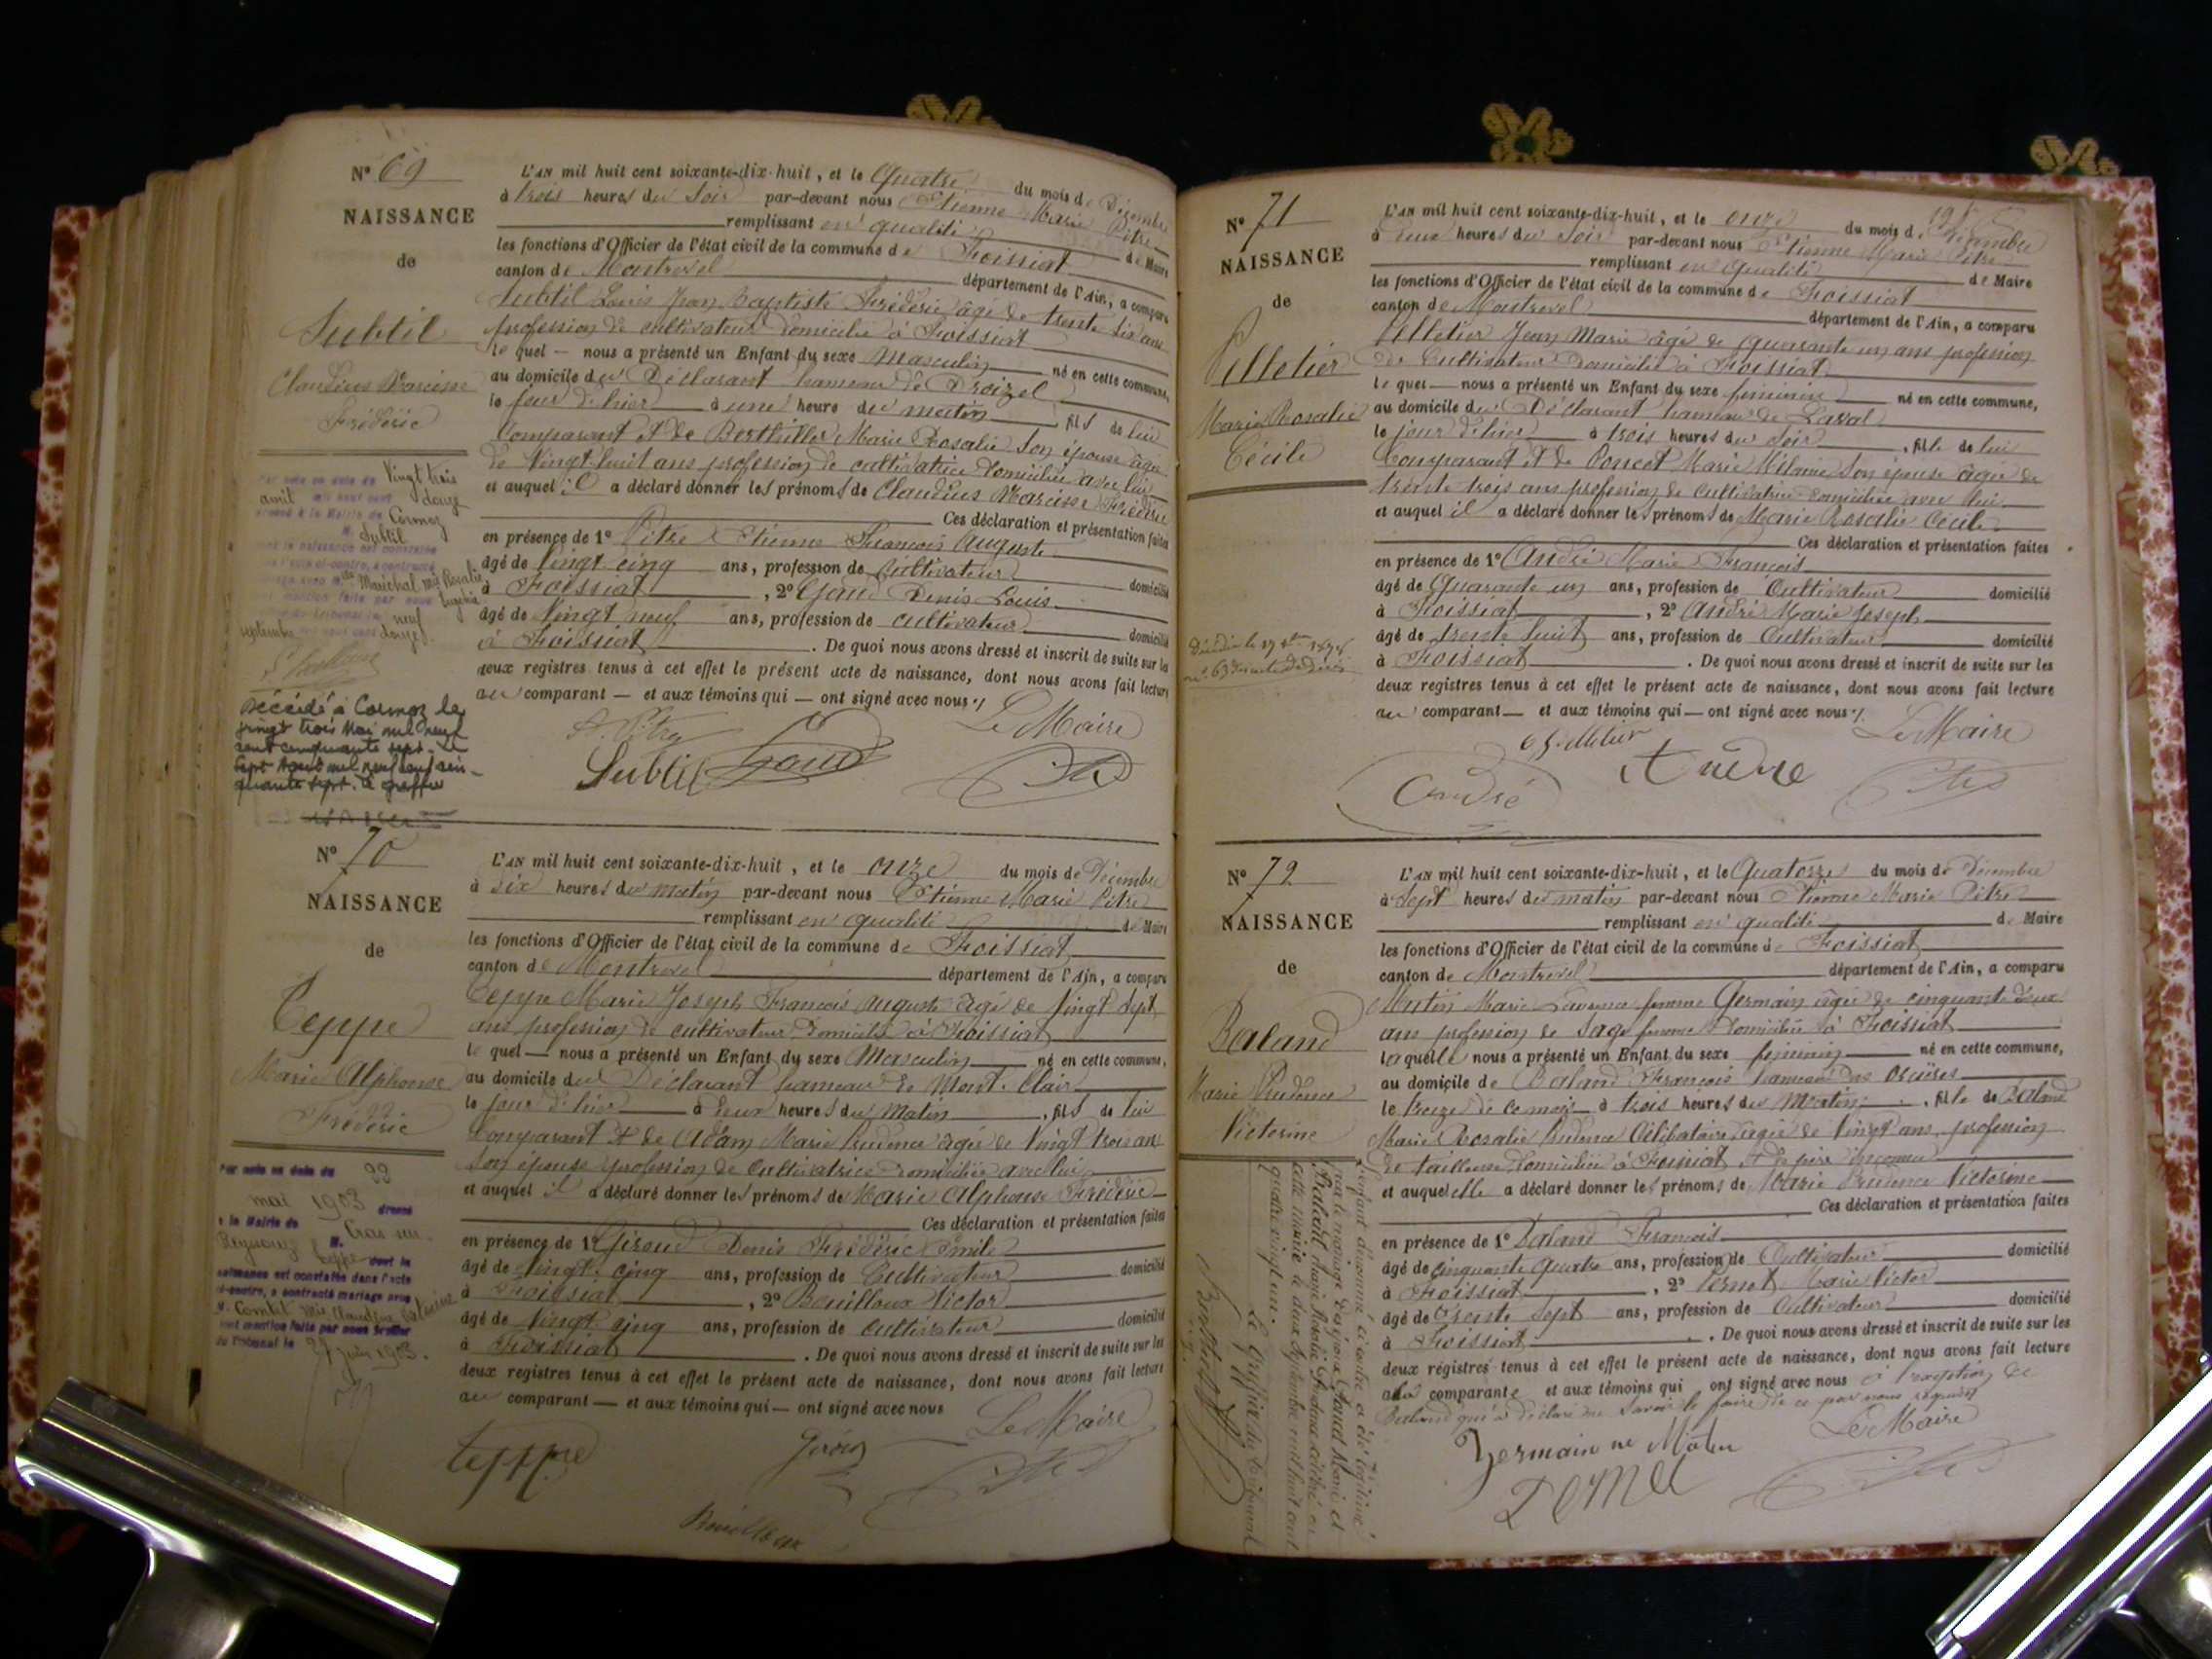 N° 69
NAISSANCE
de
Subtil
Claudius Narcisse
Frédéric
L'AN mil huit cent soixante-dix-huit, et le Quatre du mois de Décembre
à trois heures du Soir par-devant nous Etienne Marie Pitre
remplissant en qualité de Maire
les fonctions d'Officier de l'état civil de la commune de Foissiat
canton de Montrevel département de l'Ain, a comparu
Subtil Louis Jean Baptiste Frédéric âgé de trente six ans
profession de cultivateur domicilié à Foissiat
le quel — nous a présenté un Enfant du sexe Masculin né en cette commune,
au domicile du Déclarant hameau de Droizel
le jour d'hier à une heure du matin, fils de lui
Comparant et de Berthillier Marie Rosalie Son épouse âgée
de Vingt huit ans profession de cultivatrice domiciliée avec lui
et auquel il a déclaré donner les prénoms de Claudius Narcisse Frédéric
Ces déclaration et présentation faites
en présence de 1° Pitre Etienne François Auguste
âgé de Vingt cinq ans, profession de Cultivateur domicilié
à Foissiat, 2° Gaud Denis Louis
âgé de Vingt neuf ans, profession de cultivateur domicilié
à Foissiat. De quoi nous avons dressé et inscrit de suite sur les
deux registres tenus à cet effet le présent acte de naissance, dont nous avons fait lecture
au comparant — et aux témoins qui — ont signé avec nous
Le Maire
Subtil Gaud
Vingt trois
avril douze
Cormoz
Subtil
Maréchal Marie Rosalie
neuf
septembre douze
Décédé à Cormoz le
vingt trois Mai mil neuf
cent cinquante sept. Le
sept Août mil neuf cent cin-
quante sept. Le greffier
N° 70
NAISSANCE
de
Teppe
Marie Alphonse
Frédéric
L'AN mil huit cent soixante-dix-huit, et le onze du mois de Décembre
à six heures du matin par-devant nous Etienne Marie Pitre
remplissant en qualité de Maire
les fonctions d'Officier de l'état civil de la commune de Foissiat
canton de Montrevel département de l'Ain, a comparu
Teppe Marie Joseph François Auguste âgé de Vingt Sept
ans profession de cultivateur domicilié à Foissiat
le quel — nous a présenté un Enfant du sexe Masculin né en cette commune,
au domicile du Déclarant hameau de Mont Clair
le jour d'hier à deux heures du Matin, fils de lui
Comparant et de Adam Marie Prudence âgée de Vingt trois ans
Son épouse profession de Cultivatrice domiciliée avec lui
et auquel il a déclaré donner les prénoms de Marie Alphonse Frédéric
Ces déclaration et présentation faites
en présence de 1° Giroud Denis Frédéric Emile
âgé de Vingt cinq ans, profession de Cultivateur domicilié
à Foissiat, 2° Bouilloux Victor
âgé de Vingt cinq ans, profession de cultivateur domicilié
à Foissiat. De quoi nous avons dressé et inscrit de suite sur les
deux registres tenus à cet effet le présent acte de naissance, dont nous avons fait lecture
au comparant — et aux témoins qui — ont signé avec nous
Le Maire
teppe
Bouilloux
Par acte en date du 22
mai 1903 dressé
à la Mairie de Cras sur
Reyssouze M.
Teppe dont la
naissance est constatée dans l'acte
ci-contre, a contracté mariage avec
27 juin 1903.
N° 71
NAISSANCE
de
Pelletier
Marie Rosalie
Cécile
L'AN mil huit cent soixante-dix-huit, et le onze du mois de Décembre
à deux heures du Soir par-devant nous Etienne Marie Pitre
remplissant en qualité de Maire
les fonctions d'Officier de l'état civil de la commune de Foissiat
canton de Montrevel département de l'Ain, a comparu
Pelletier Jean Marie âgé de quarante un ans profession
de Cultivateur domicilié à Foissiat
le quel — nous a présenté un Enfant du sexe féminin né en cette commune,
au domicile du Déclarant hameau de Laval
le jour d'hier à trois heures du Soir, fille de lui
Comparant et de Poncet Marie Mélanie Son épouse âgée de
trente trois ans profession de cultivatrice domiciliée avec lui
et auquel il a déclaré donner les prénoms de Marie Rosalie Cécile
Ces déclaration et présentation faites
en présence de 1° André Marie François
âgé de Quarante un ans, profession de Cultivateur domicilié
à Foissiat, 2° André Marie Joseph
âgé de trente huit ans, profession de Cultivateur domicilié
à Foissiat. De quoi nous avons dressé et inscrit de suite sur les
deux registres tenus à cet effet le présent acte de naissance, dont nous avons fait lecture
au comparant — et aux témoins qui — ont signé avec nous
Le Maire
André
N° 72
NAISSANCE
de
Baland
Marie Prudence
Victorine
L'AN mil huit cent soixante-dix-huit, et le Quatorze du mois de Décembre
à Sept heures du matin par-devant nous Etienne Marie Pitre
remplissant en qualité de Maire
les fonctions d'Officier de l'état civil de la commune de Foissiat
canton de Montrevel département de l'Ain, a comparu
Mutin Marie femme Germain âgée de cinquante deux
ans profession de Sage femme domiciliée à Foissiat
laquelle nous a présenté un Enfant du sexe féminin né en cette commune,
au domicile de Baland François hameau des
le treize de ce mois à trois heures du Matin, fille de Baland
Marie Rosalie Prudence Célibataire âgée de Vingt ans profession
de tailleuse domiciliée à Foissiat et de père inconnu
et auquel elle a déclaré donner les prénoms de Marie Prudence Victorine
Ces déclaration et présentation faites
en présence de 1° Baland François
âgé de cinquante quatre ans, profession de Cultivateur domicilié
à Foissiat, 2° Pernet Marie Victor
âgé de Trente Sept ans, profession de Cultivateur domicilié
à Foissiat. De quoi nous avons dressé et inscrit de suite sur les
deux registres tenus à cet effet le présent acte de naissance, dont nous avons fait lecture
à la comparante et aux témoins qui ont signé avec nous à l'exception de
Baland qui a déclaré ne savoir le faire de ce par nous requis
Le Maire
Germain
L'enfant dénommé ci contre a été légitimé
par le mariage
Baland Marie Rosalie Prudence célébré en
cette mairie le deux Septembre mil huit cent
quatre vingt un.
Le Greffier du Tribunal